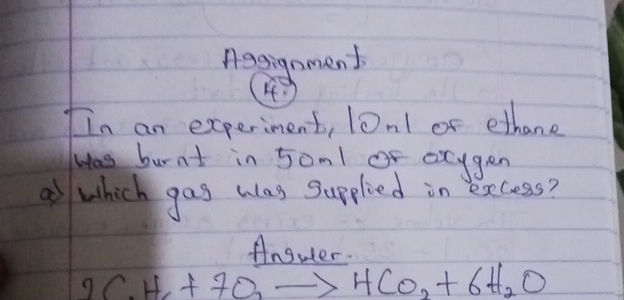 Assignment
4.
In an experiment, 10ml of ethane
was burnt in 50ml of oxygen
a) which gas was supplied in excess?
Answer.
2C₂H₆ + 7O₂ → 4CO₂ + 6H₂O